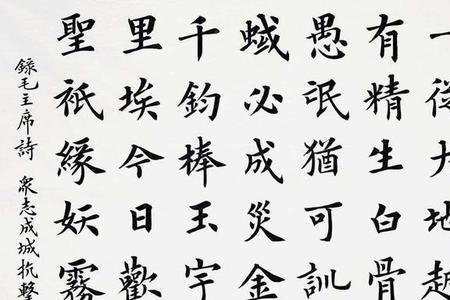 一從大地起
有精生白骨
愚氓猶可訓
蜮必成災金
千鈞棒玉宇
里埃今日歡
聖祇緣妖霧
錄毛主席詩 眾志成城抗擊